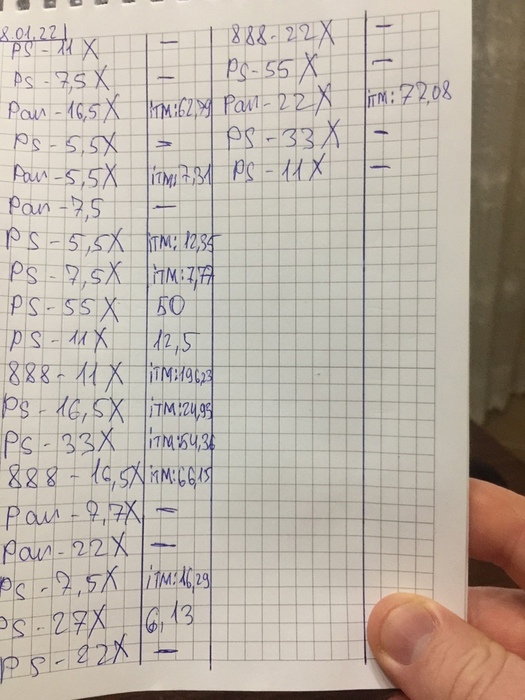 8.01.22
PS-11X —
PS-7,5X —
Pari-16,5X iTM:62,79
PS-5,5X —
Pari-5,5X iTM:7,31
Pari-7,5 —
PS-5,5X iTM:12,35
PS-7,5X iTM:7,77
PS-55X 50
PS-11X 12,5
888-11X iTM:196,23
PS-16,5X iTM:24,95
PS-33X iTM:54,36
888-16,5X iTM:66,15
Pari-7,7X —
Pari-22X —
PS-7,5X iTM:16,29
PS-27X 6,13
PS-22X —
888-22X —
PS-55X —
Pari-22X iTM:72,08
PS-33X —
PS-11X —